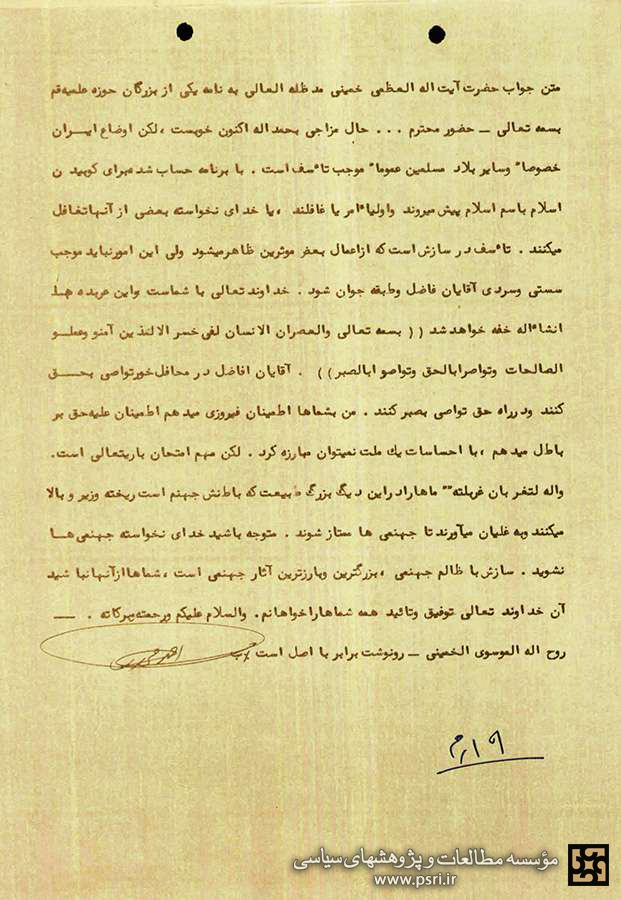 متن جواب حضرت آیت اله العظمی خمینی مد ظله العالی به نامه یکی از بزرگان حوزه علمیه قم
بسمه تعالی ــ حضور محترم ... حال مزاجی بحمد اله اکنون خوبست ، لکن اوضاع ایــران
خصوصا" وسایر بلاد مسلمین عموما" موجب تاءسف است . با برنامه حساب شده برای کوبید ن
اسلام باسم اسلام پیش میروند واولیاءامر یا غافلند ، یا خدای نخواسته بعضی از آنها تغافل
میکنند . تاءسف در سازش است که از اعمال بعض موثرین ظاهر میشود ولی این امور نباید موجب
سستی وسردی آقایان فاضل وطبقه جوان شود . خداوند تعالی با شماست واین عربده ها
انشاءاله خفه خواهد شد (( بسمه تعالی والعصران الانسان لفی خسر الالذین آمنو وعملو
الصالحات وتواصرابالحق وتواصو ابالصبر )) . آقایان افاضل در محافل خود تواصی بحــق
کنند ودرراه حق تواصی بصبر کنند . من بشماها اطمینان فیروزی میدهم اطمینان غلبه حق بر
باطل میدهم ، با احساسات یك ملت نمیتوان مبارزه کرد . لکن مهم امتحان باریتعالی است.
واله لتغر بان غربلته "" ماهاراد راین دیگ بزرگ طبیعت که باطنش جهنم است ریخته وزیر و بالا
میکنند وبه غلیان میآورند تا جهنمی ها ممتاز شوند . متوجه باشید خدای نخواسته جهنمی هــا
نشوید . سازش با ظالم جهنمی ، بزرگترین وبارزترین آثار جهنمی است ، شماها از آنها نبا شید
آن خداوند تعالی توفیق وتائید همه شماهارا خواهانم . والسلام علیکم ورحمته وبرکاته . ــ
روح اله الموسوی الخمینی ــ رونوشت برابر با اصل است
۱۹رم
مؤسسه مطالعات و پژوهشهای سیاسی
www.psri.ir